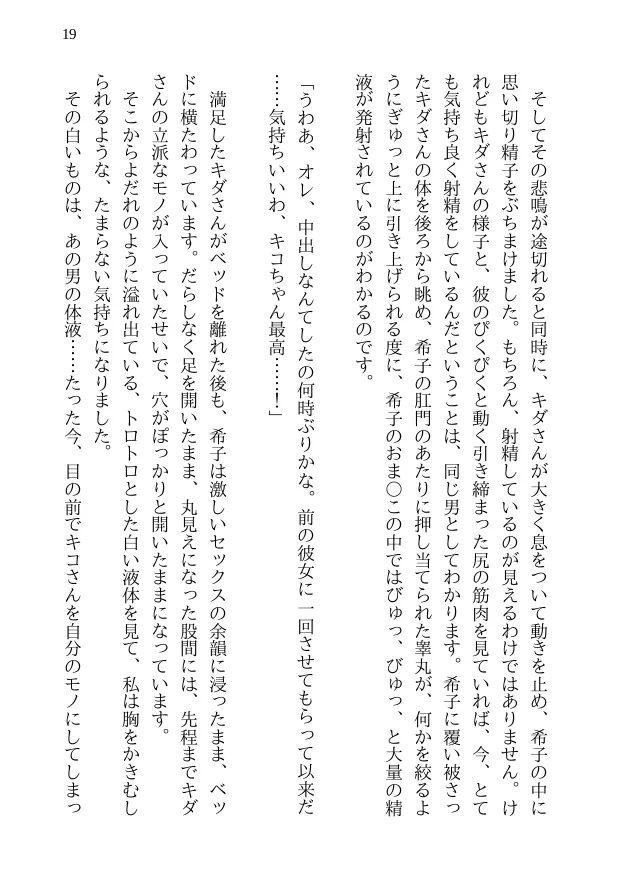 19
　そしてその悲鳴が途切れると同時に、キダさんが大きく息をついて動きを止め、希子の中に
思い切り精子をぶちまけました。もちろん、射精しているのが見えるわけではありません。け
れどもキダさんの様子と、彼のぴくぴくと動く引き締まった尻の筋肉を見ていれば、今、とて
も気持ち良く射精をしているんだということは、同じ男としてわかります。希子に覆い被さっ
たキダさんの体を後ろから眺め、希子の肛門のあたりに押し当てられた睾丸が、何かを絞るよ
うにぎゅっと上に引き上げられる度に、希子のおま〇この中ではびゅっ、びゅっ、と大量の精
液が発射されているのがわかるのです。
「うわあ、オレ、中出しなんてしたの何時ぶりかな。前の彼女に一回させてもらって以来だ
……気持ちいいわ、キコちゃん最高……！」
　満足したキダさんがベッドを離れた後も、希子は激しいセックスの余韻に浸ったまま、ベッ
ドに横たわっています。だらしなく足を開いたまま、丸見えになった股間には、先程までキダ
さんの立派なモノが入っていたせいで、穴がぽっかりと開いたままになっています。
　そこからよだれのように溢れ出ている、トロトロとした白い液体を見て、私は胸をかきむし
られるような、たまらない気持ちになりました。
　その白いものは、あの男の体液……たった今、目の前でキコさんを自分のモノにしてしまっ